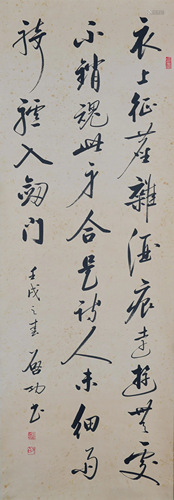 衣上征塵雜酒痕遠遊無處
不銷魂此身合是詩人未細雨
騎驢入劍門
壬戌之春 啟功書